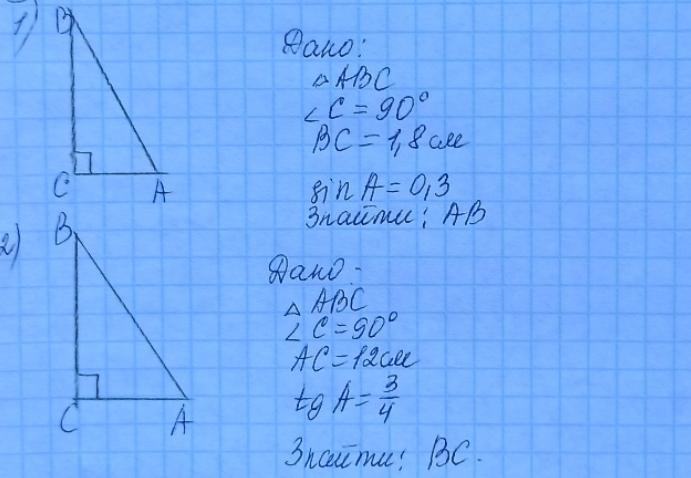 1)
B
C
A
Дано:
△ ABC
∠ C = 90°
BC = 1,8 см
sin A = 0,3
Знайти: AB
2)
B
C
A
Дано -
△ ABC
∠ C = 90°
AC = 12 см
tg A = 3/4
Знайти: BC.